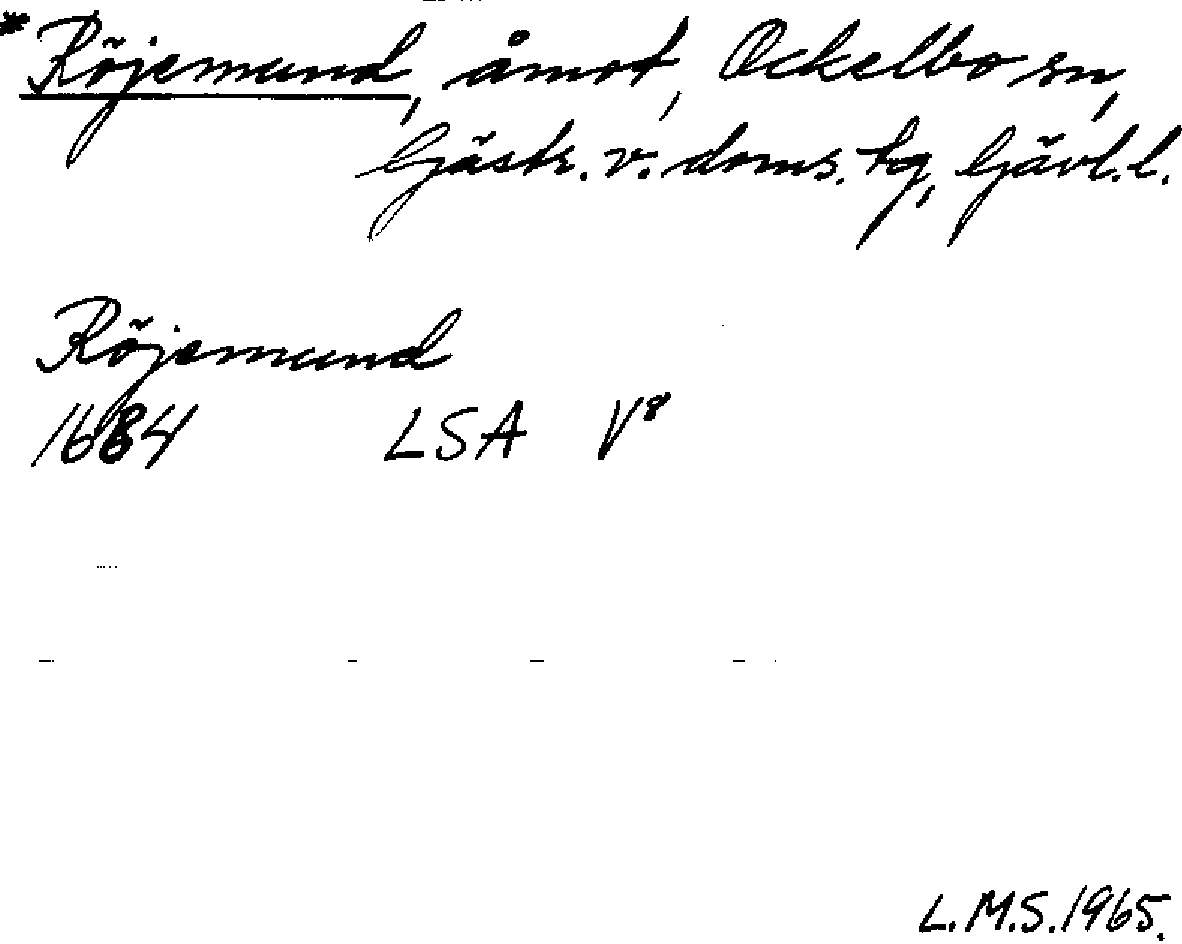 *Röjemund, åmot, Ockelbo sn,
Gästr. v. doms. tg, Gävl. l.
Röjemund
1684 LSA V8
L.M.S. 1965.